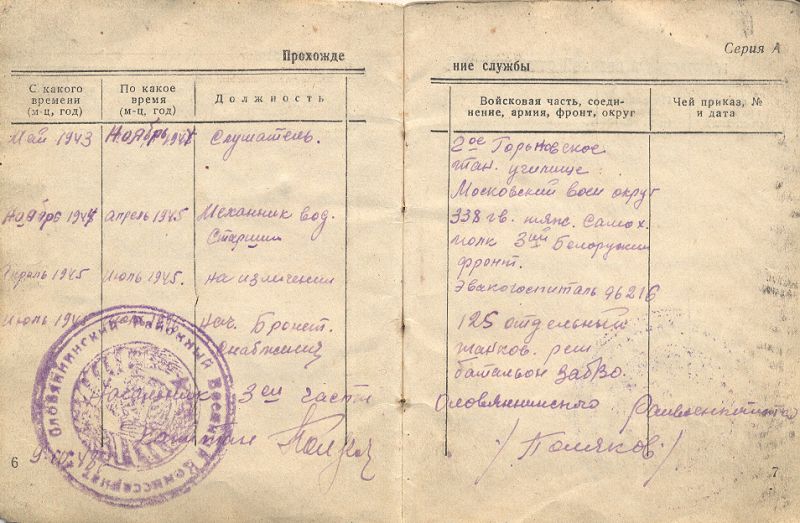 Прохожде
С какого времени (м-ц, год)
По какое время (м-ц, год)
Должность
Май 1943
Ноябрь 1944
Слушатель.
Ноябрь 1944
апрель 1945
Механник вод.
Старший
Апрель 1945
Июль 1945.
на излечении
Июль 194
Нач. Бронет.
снабжения
Начальник 3ей части
Капитан
6
ОЛОВЯННИНСКИЙ РАЙОННЫЙ ВОЕННЫЙ КОМИССАРИАТ
Серия А
ние службы
Войсковая часть, соеди-
нение, армия, фронт, округ
Чей приказ, №
и дата
2ое Горьковское
тан. училище
Московский воен округ
338 гв. тяж. Самох.
полк 3ий Белоружки
фронт.
Эвакогоспиталь № 6216
125 отдельный
танков. рем
батальон ЗабВо.
Оловяннинского Райвоенкомата
/Поляков/
7